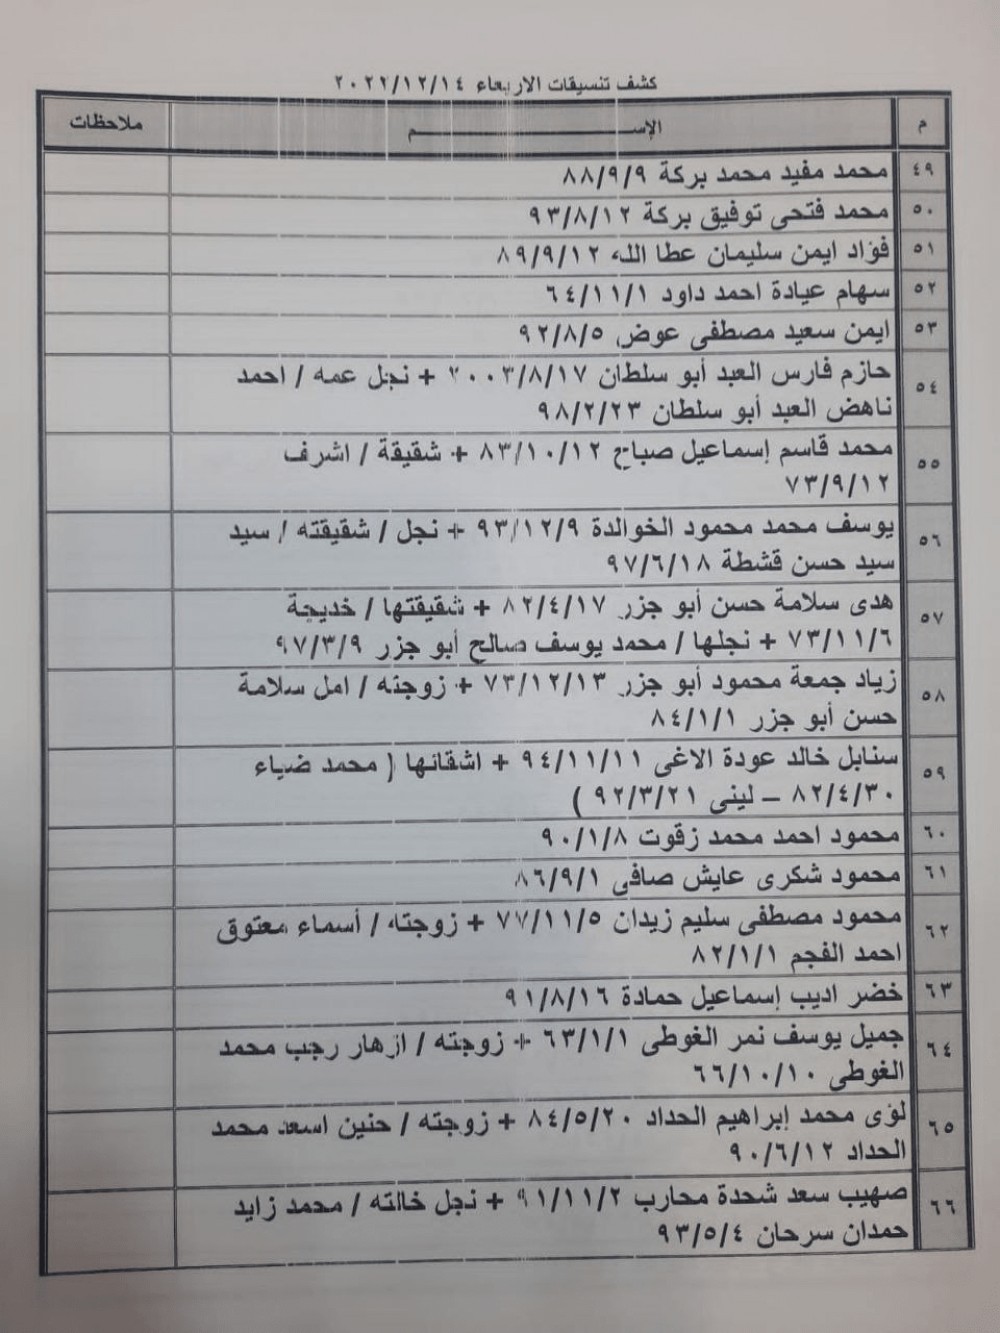 كشف تنسيقات الاربعاء ٢٠٢٢/١٢/١٤
م الإســـــــــم ملاحظات
٤٩ محمد مفيد محمد بركة ٨٨/٩/٩
٥٠ محمد فتحى توفيق بركة ٩٣/٨/١٢
٥١ فؤاد ايمن سليمان عطا الله ٨٩/٩/١٢
٥٢ سهام عيادة احمد داود ٦٤/١١/١
٥٣ ايمن سعيد مصطفى عوض ٩٢/٨/٥
٥٤ حازم فارس العبد أبو سلطان ٢٠٠٣/٨/١٧ + نجل عمه / احمد
ناهض العبد أبو سلطان ٩٨/٢/٢٣
٥٥ محمد قاسم إسماعيل صباح ٨٣/١٠/١٢ + شقيقة / اشرف
٧٣/٩/١٢
٥٦ يوسف محمد محمود الخوالدة ٩٣/١٢/٩ + نجل / شقيقته / سيد
سيد حسن قشطة ٩٧/٦/١٨
٥٧ هدى سلامة حسن أبو جزر ٨٢/٤/١٧ + شقيقتها / خديجة
٧٣/١١/٦ + نجلها / محمد يوسف صالح أبو جزر ٩٧/٣/٩
٥٨ زياد جمعة محمود أبو جزر ٧٣/١٢/١٣ + زوجته / امل سلامة
حسن أبو جزر ٨٤/١/١
٥٩ سنابل خالد عودة الاغى ٩٤/١١/١١ + اشقائها ( محمد ضياء
٨٢/٤/٣٠ – لينى ٩٢/٣/٢١ )
٦٠ محمود احمد محمد زقوت ٩٠/١/٨
٦١ محمود شكرى عايش صافى ٨٦/٩/١
٦٢ محمود مصطفى سليم زيدان ٧٧/١١/٥ + زوجته / أسماء معتوق
احمد الفجم ٨٢/١/١
٦٣ خضر اديب إسماعيل حمادة ٩١/٨/١٦
٦٤ جميل يوسف نمر الغوطى ٦٣/١/١ + زوجته / ازهار رجب محمد
الغوطى ٦٦/١٠/١٠
٦٥ لؤى محمد إبراهيم الحداد ٨٤/٥/٢٠ + زوجته / حنين اسعد محمد
الحداد ٩٠/٦/١٢
٦٦ صهيب سعد شحدة محارب ٩١/١١/٢ + نجل خالته / محمد زايد
حمدان سرحان ٩٣/٥/٤